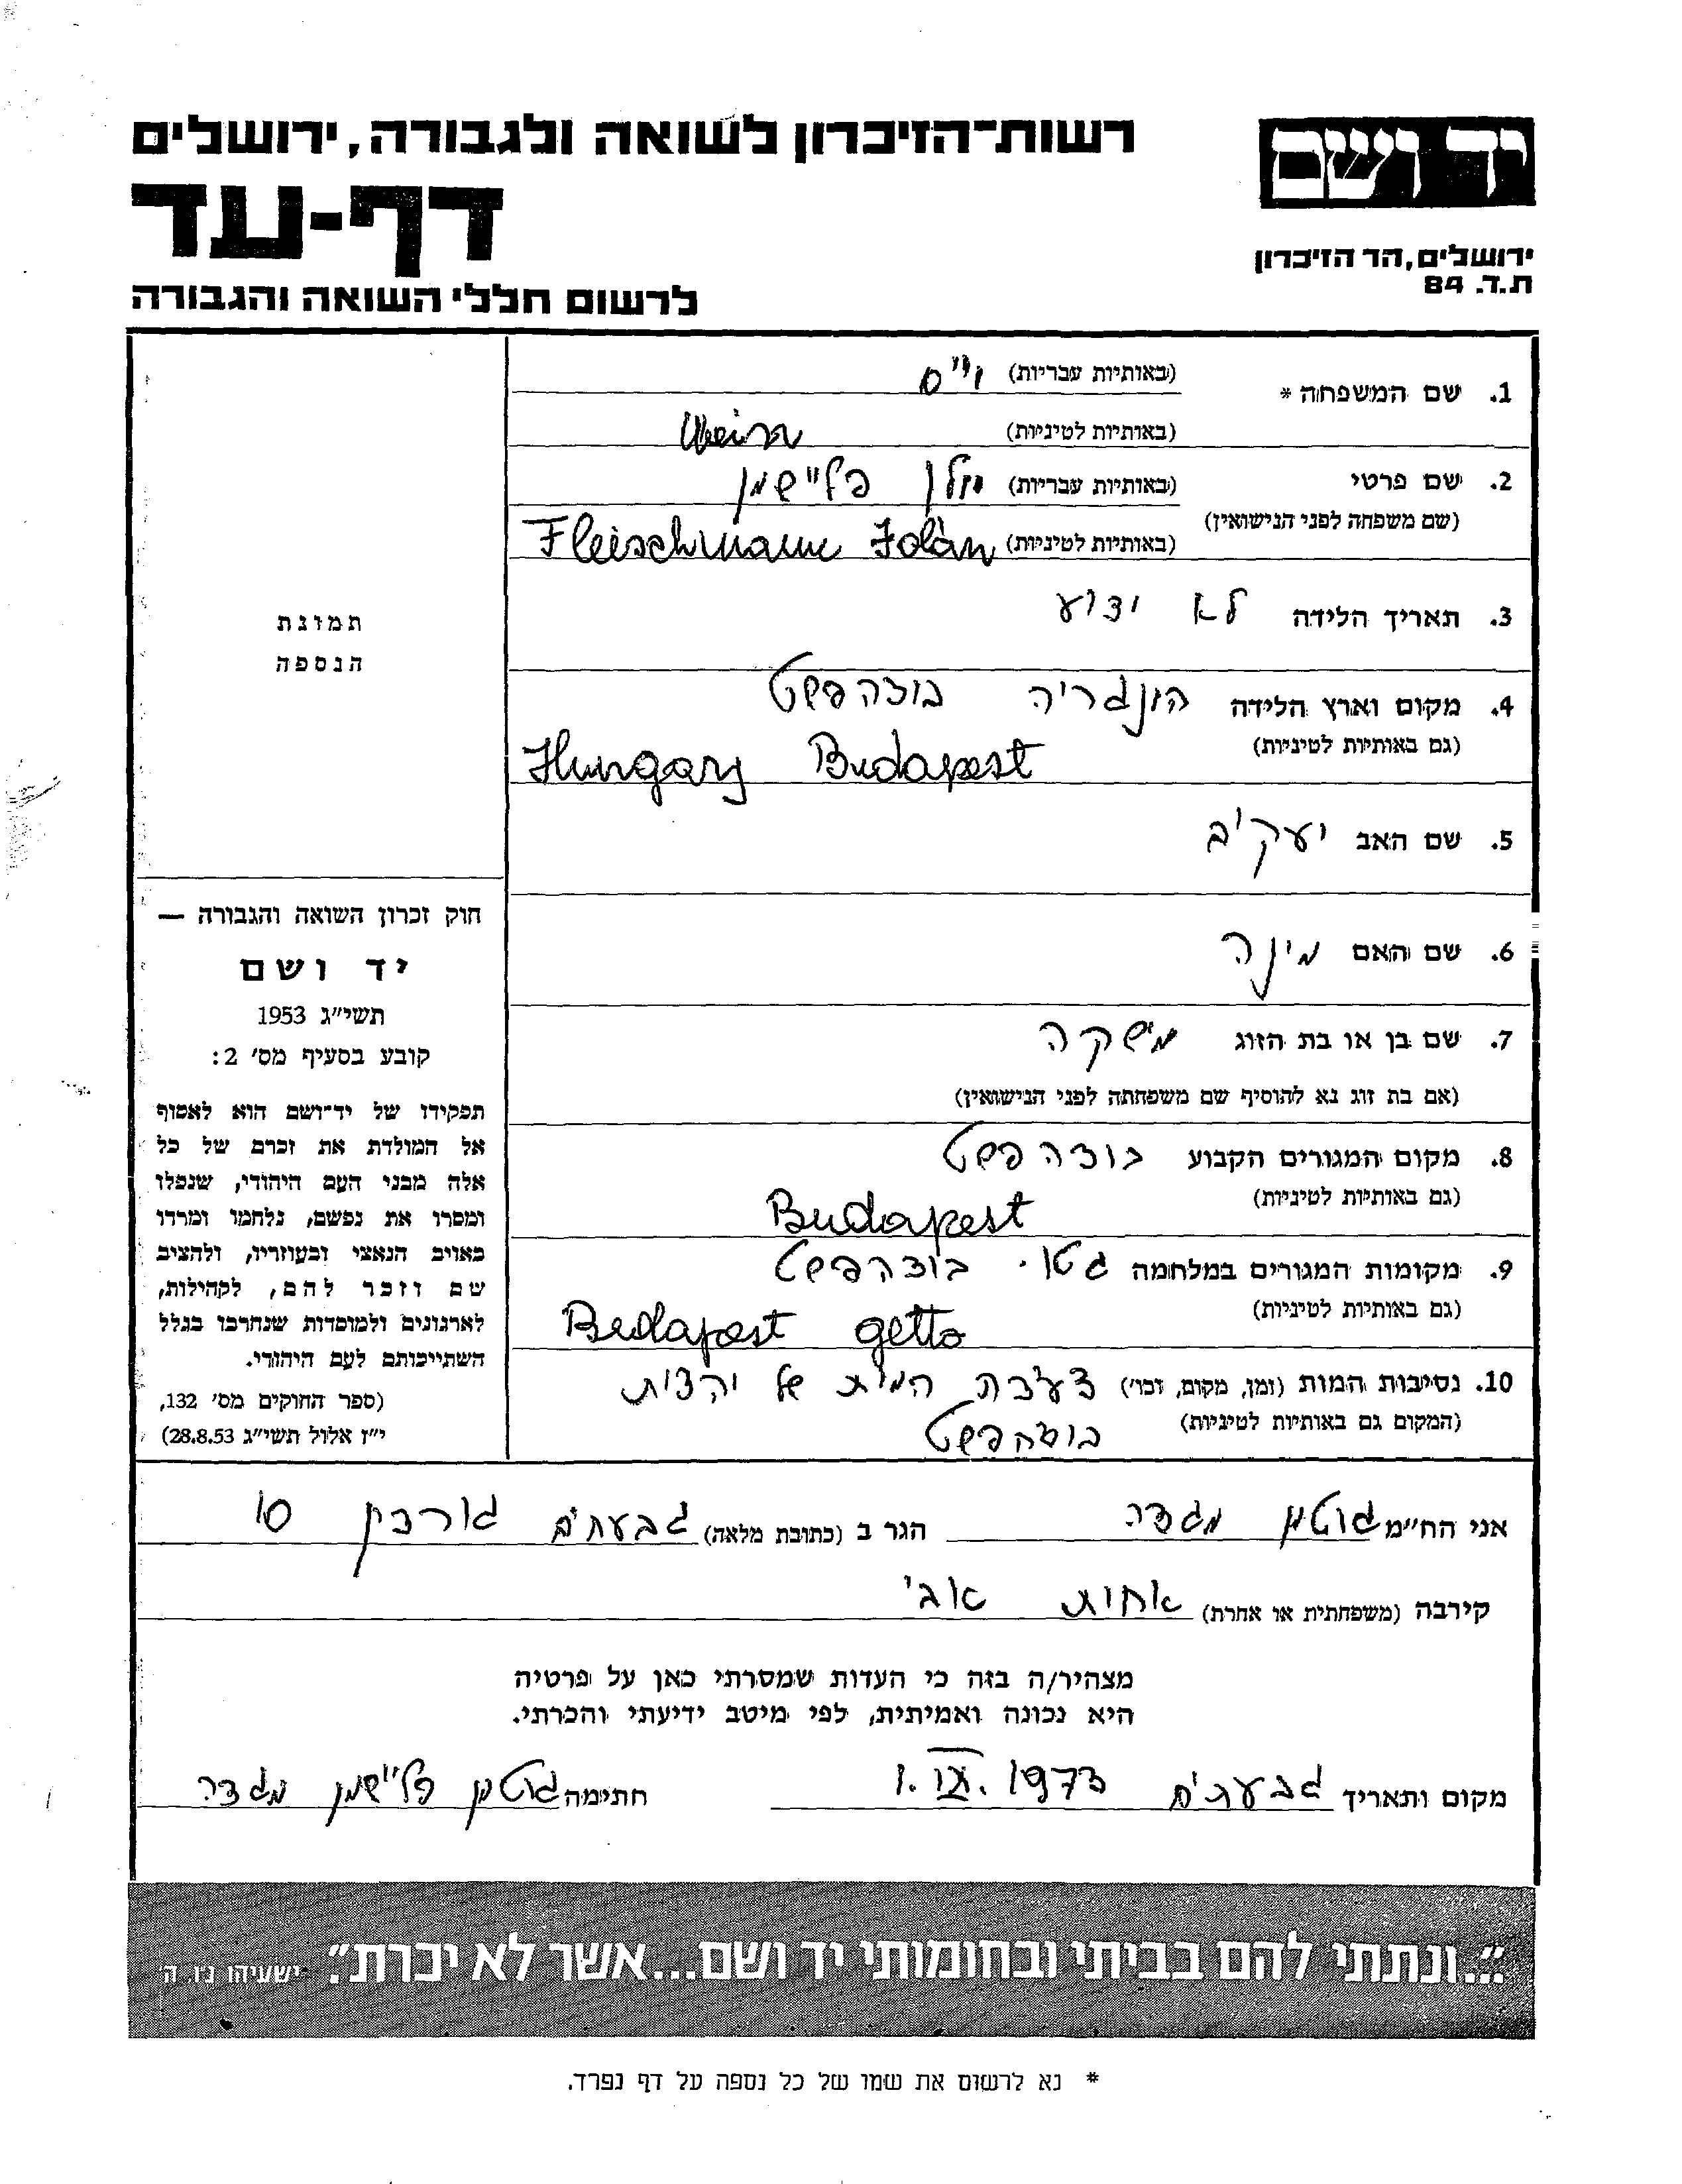 יד ושם
ירושלים, הר הזיכרון
ת.ד. 84
רשות-הזיכרון לשואה ולגבורה, ירושלים
דף-עד
לרשום חללי השואה והגבורה
1. שם המשפחה * (באותיות עבריות) וייס
(באותיות לטיניות) Weiss
2. שם פרטי (באותיות עבריות) יולן פליישמן
(שם משפחה לפני הנישואין)
(באותיות לטיניות) Fleischmann Jolán
3. תאריך הלידה לא ידוע
4. מקום וארץ הלידה הונגריה בודהפשט
(גם באותיות לטיניות)
Hungary Budapest
5. שם האב יעקוב
6. שם האם מינה
7. שם בן או בת הזוג מישקה
(אם בת זוג נא להוסיף שם משפחתה לפני הנישואין)
8. מקום המגורים הקבוע בודהפשט
(גם באותיות לטיניות)
Budapest
9. מקומות המגורים במלחמה גטו בודהפשט
(גם באותיות לטיניות)
Budapest getto
10. נסיבות המות (זמן, מקום, וכו') צעדת המות של יהדות
(המקום גם באותיות לטיניות)
בודהפשט
תמונת
הנספה
חוק זכרון השואה והגבורה —
יד ושם
תשי"ג 1953
קובע בסעיף מס' 2:
תפקידו של יד-ושם הוא לאסוף
אל המולדת את זכרם של כל
אלה מבני העם היהודי, שנפלו
ומסרו את נפשם, נלחמו ומרדו
באויב הנאצי ובעוזריו, ולהציב
שם וזכר להם, לקהילות,
לארגונים ולמוסדות שנחרבו בגלל
השתייכותם לעם היהודי.
(ספר החוקים מס' 132,
י"ז אלול תשי"ג 28.8.53)
אני הח"מ גוטמן מגדה הגר ב (כתובת מלאה) גבעתים גורדון 10
קירבה (משפחתית או אחרת) אחות אבי
מצהיר/ה בזה כי העדות שמסרתי כאן על פרטיה
היא נכונה ואמיתית, לפי מיטב ידיעתי והכרתי.
מקום ותאריך גבעתים 1. IX. 1973 חתימה גוטמן פליישמן מגדה
"...ונתתי להם בביתי ובחומותי יד ושם...אשר לא יכרת". ישעיהו נ"ו ה'
* נא לרשום את שמו של כל נספה על דף נפרד.